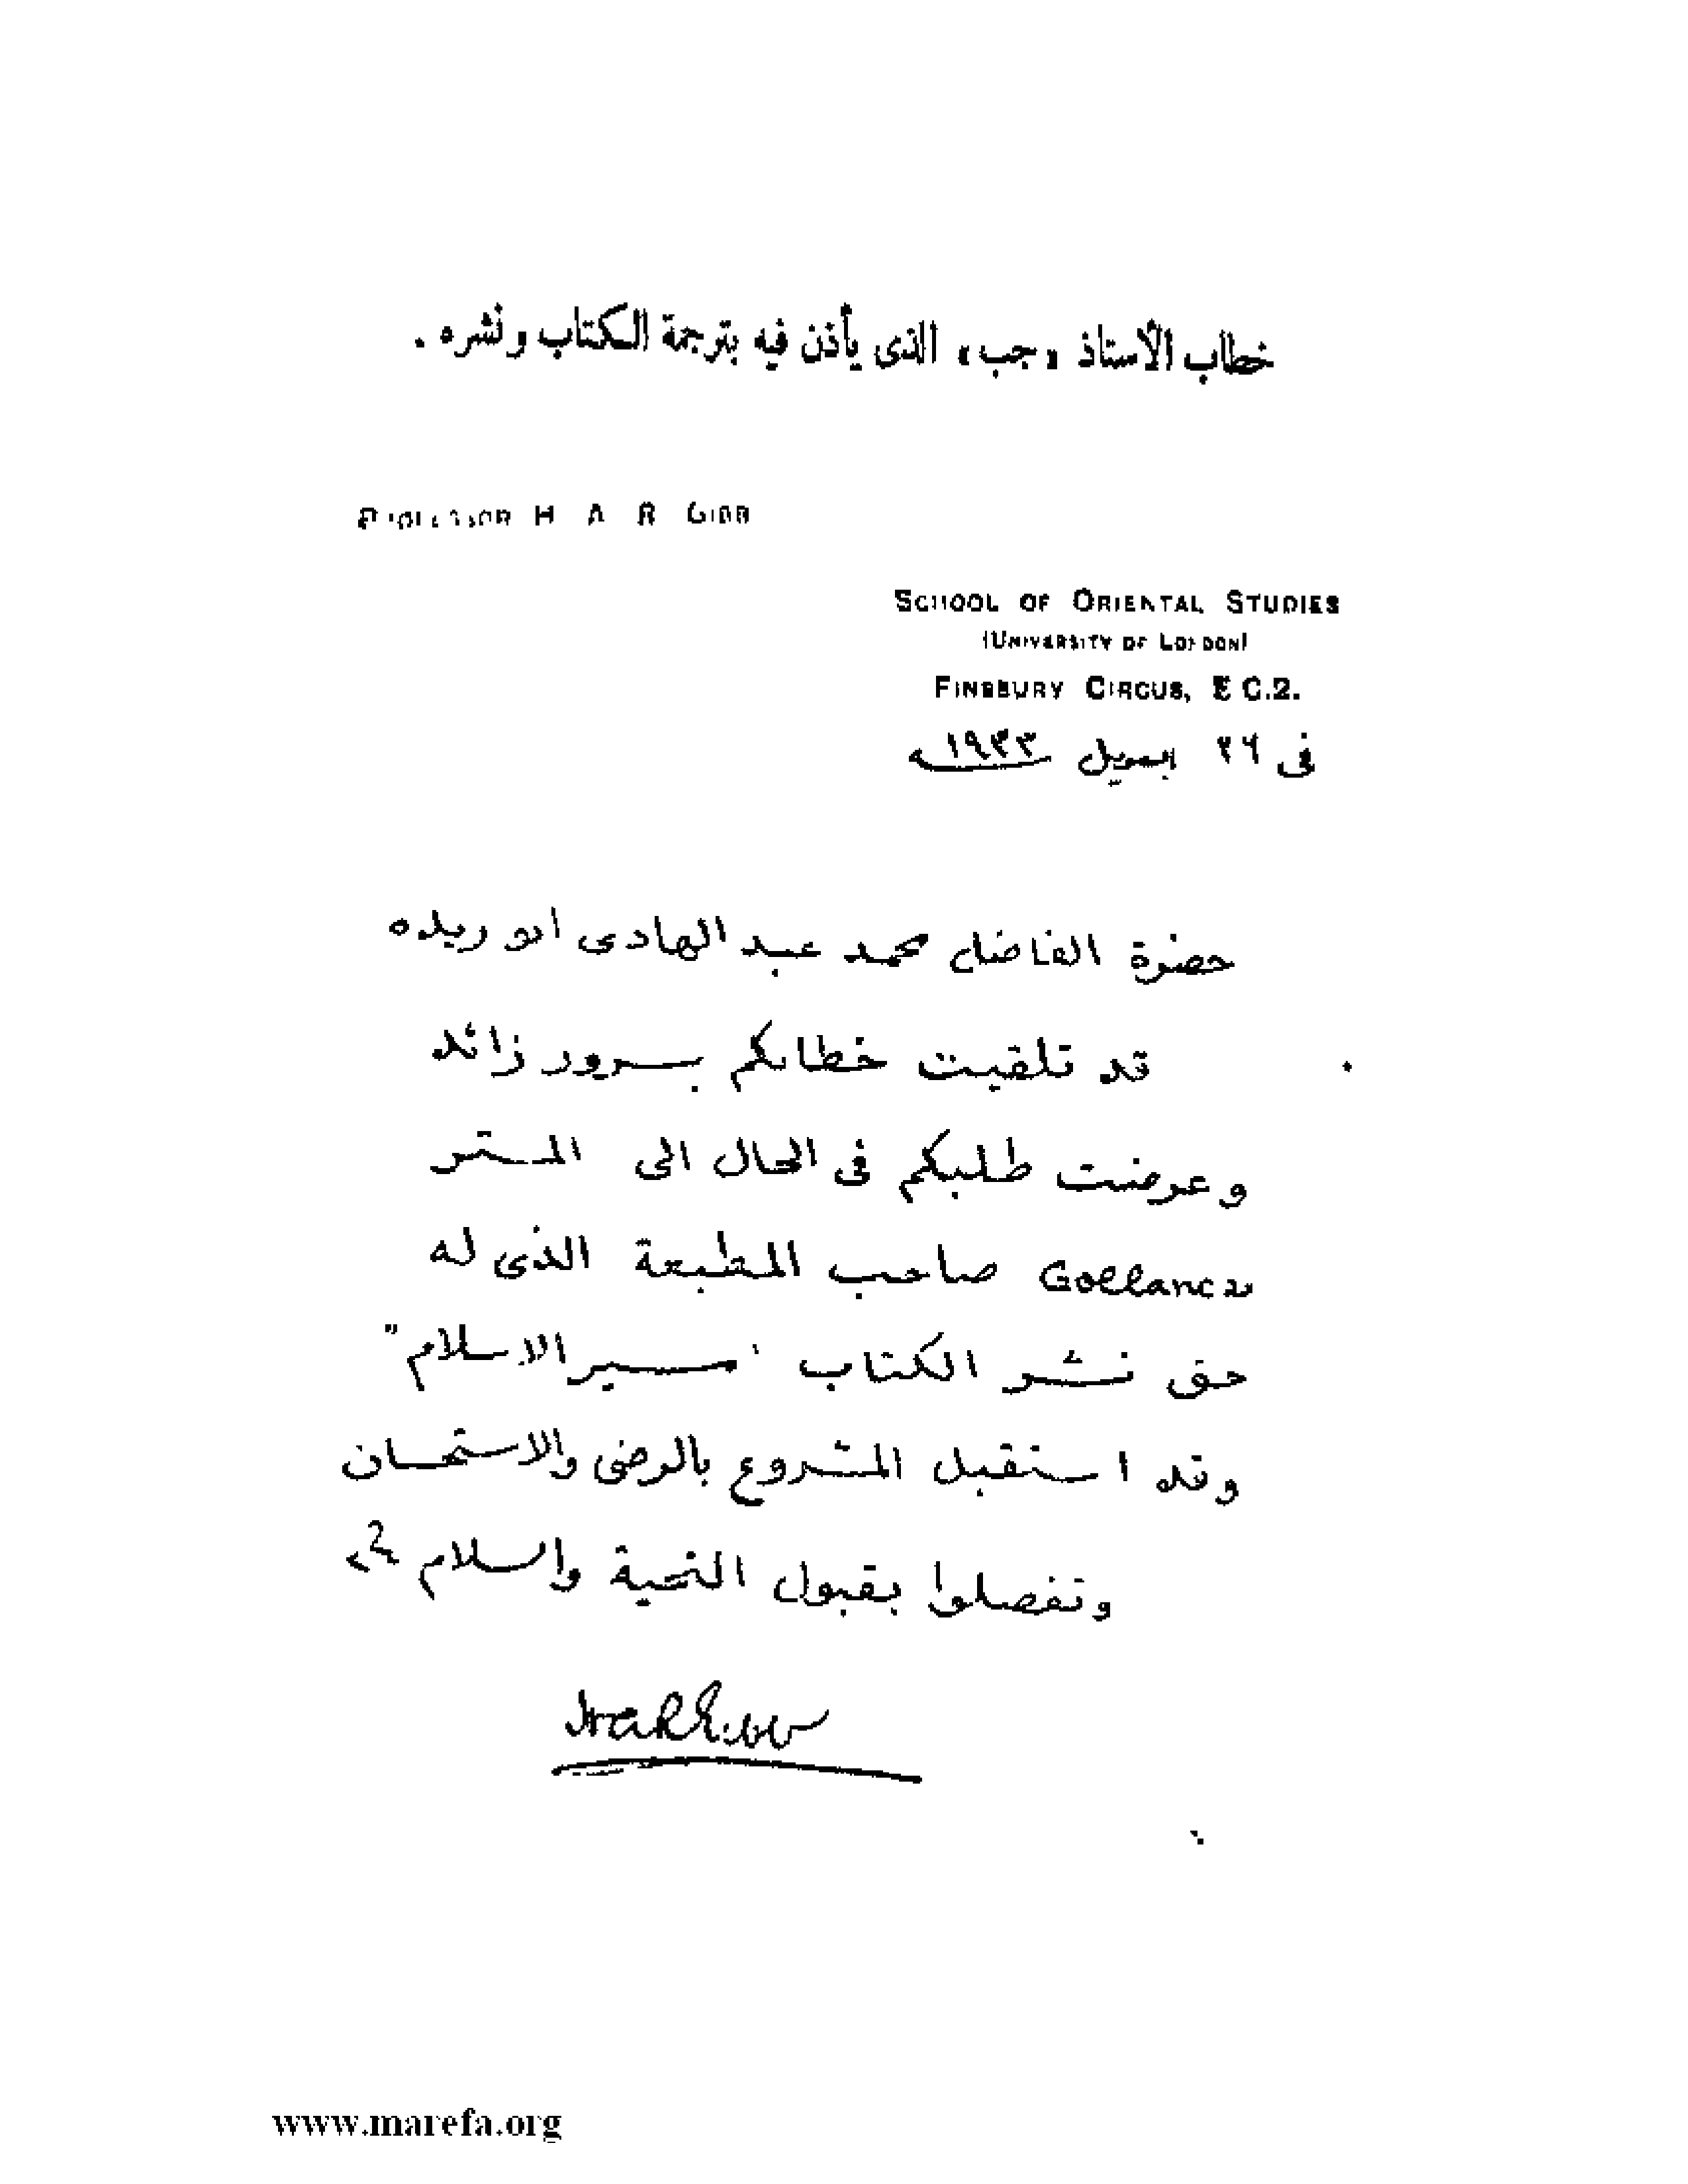 خطاب الأستاذ «جب» الذى يأذن فيه بترجمة الكتاب ونشره .
PROFESSOR H A R GIBB
SCHOOL OF ORIENTAL STUDIES
(UNIVERSITY OF LONDON)
FINSBURY CIRCUS, E C.2.
فى ٢٦ ابريل ١٩٣٣
حضرة الفاضل محمد عبد الهادى ابو ريده
قد تلقيت خطابكم بسرور زائد
وعرضت طلبكم فى الحال الى المستر
Gollancz صاحب المطبعة الذى له
حق نشر الكتاب "مسير الاسلام"
وقد استقبل المشروع بالرضى والاستحسان
وتفضلوا بقبول التحية والسلام
HARGibb
www.marefa.org